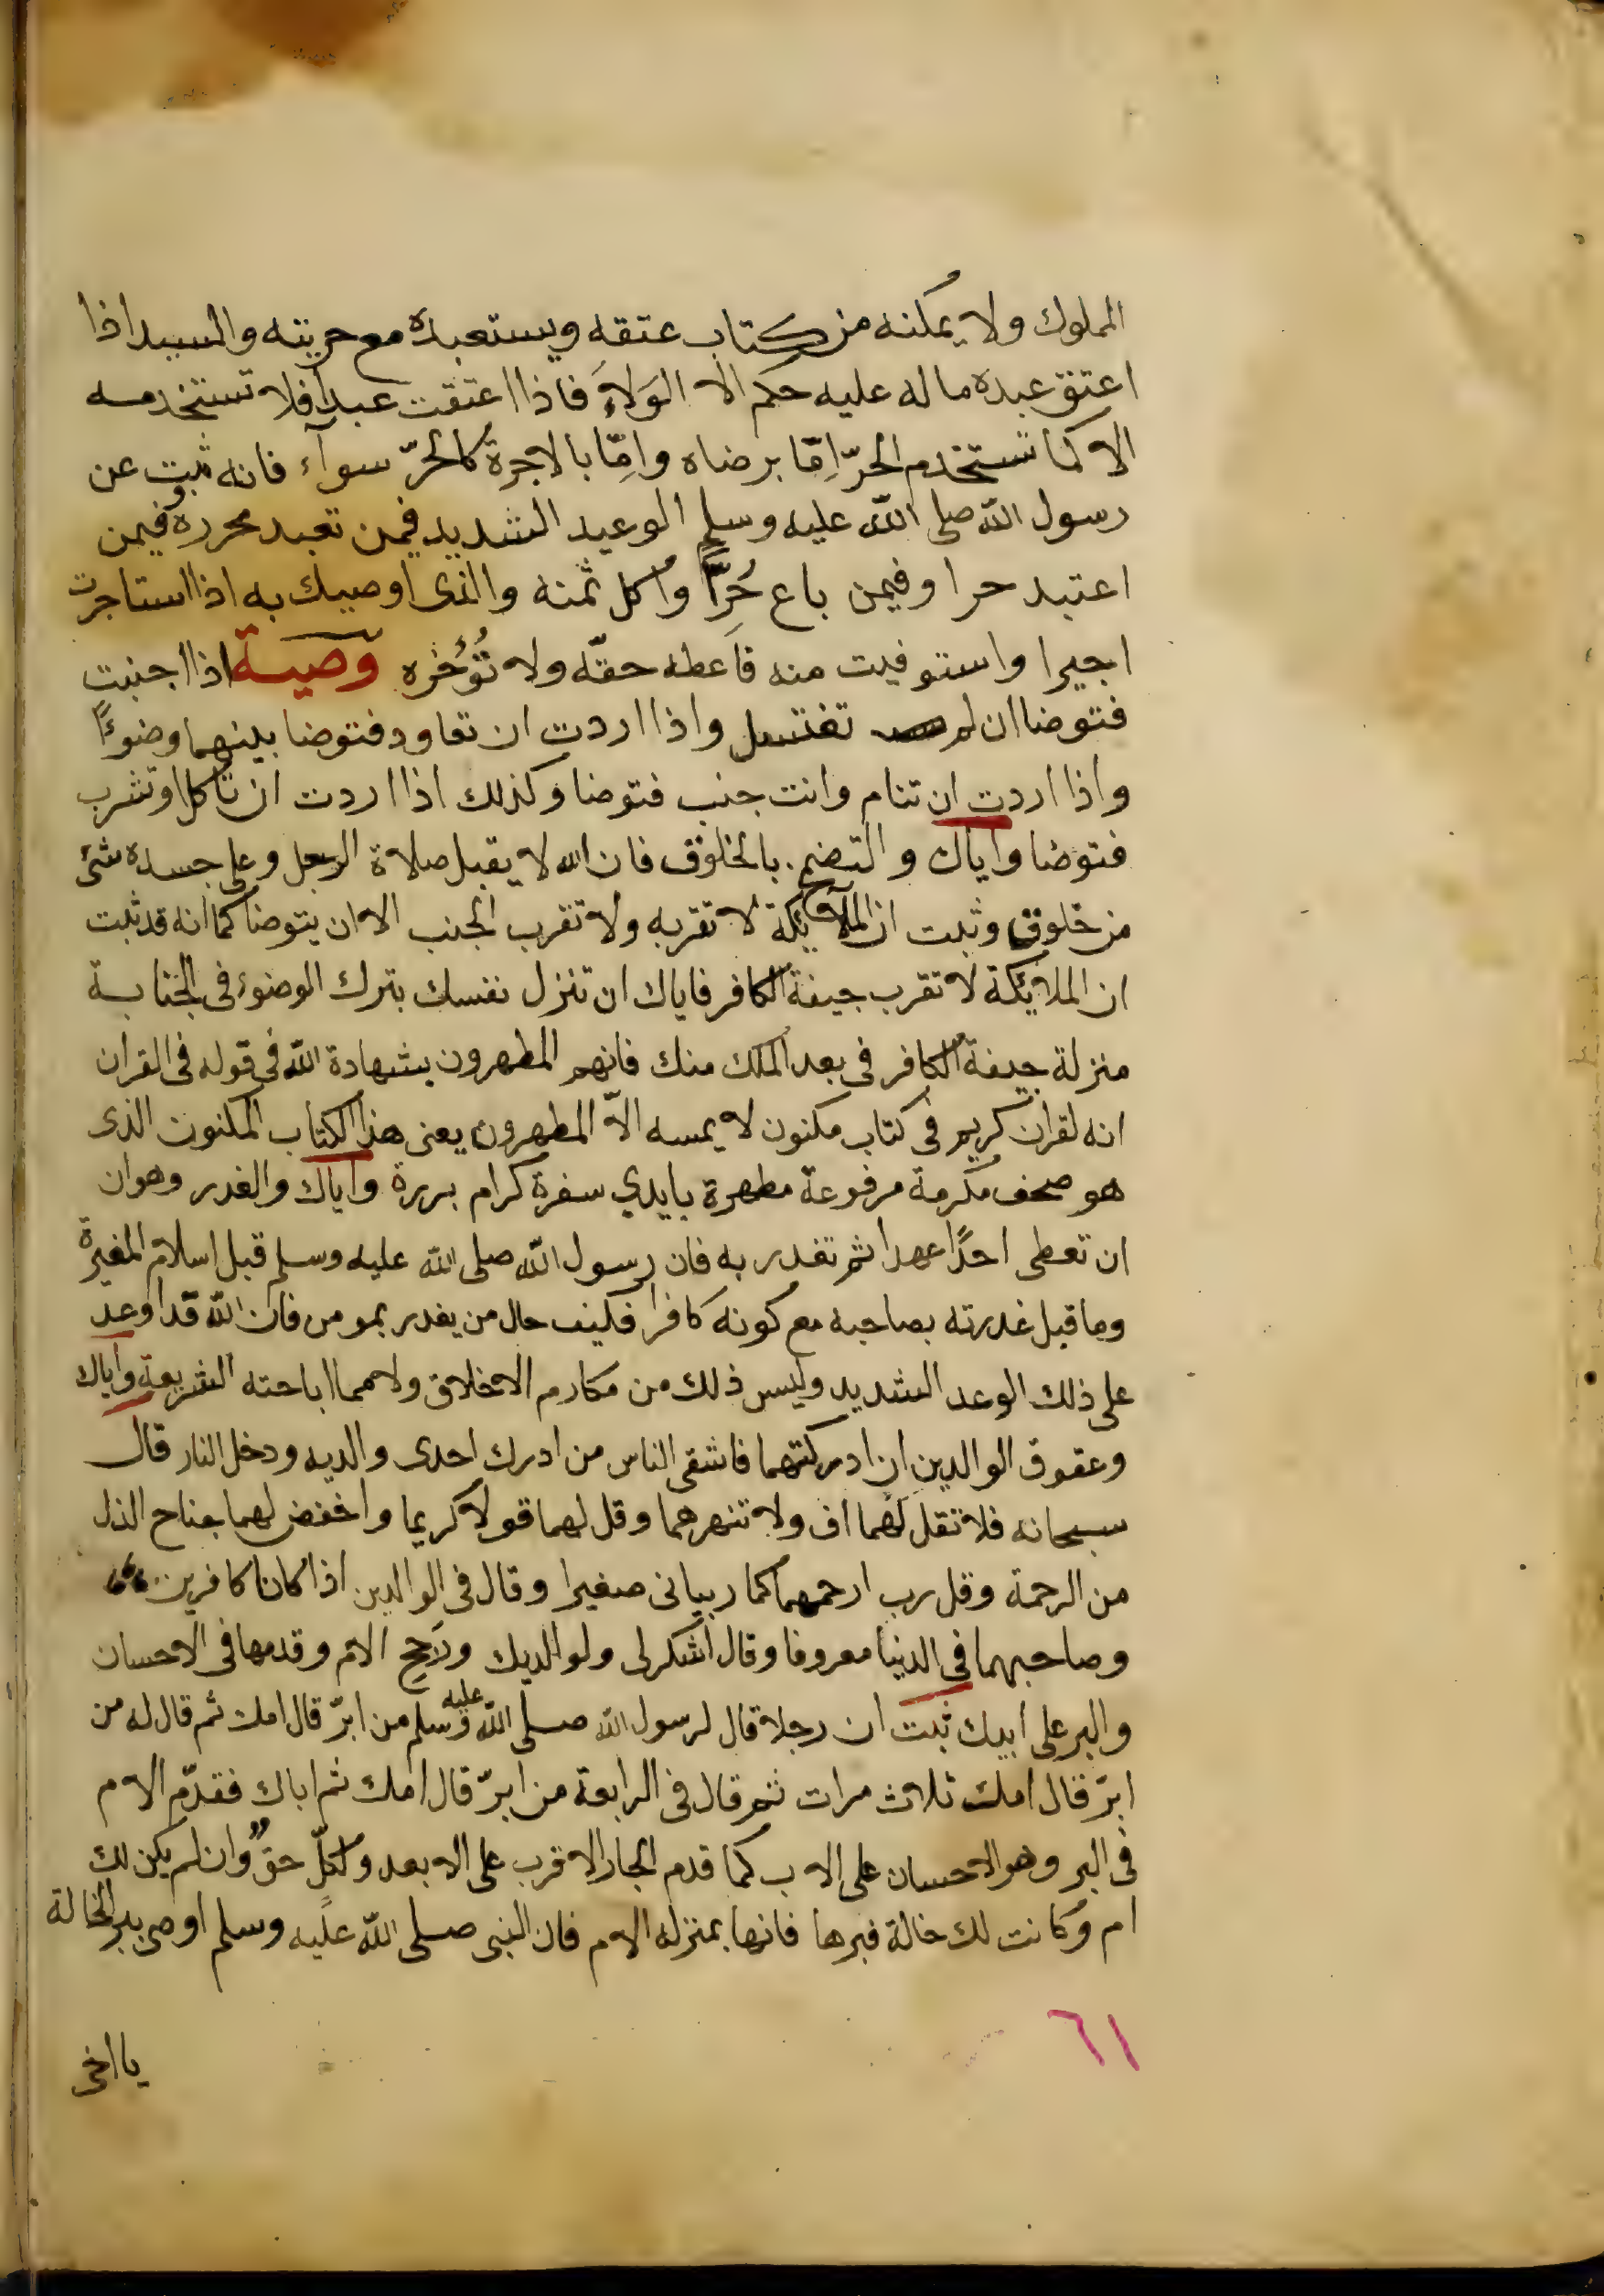 المملوك ولا يمكنه من كتاب عتقه ويستعبده مع حريته والسيد اذا
اعتق عبده ماله عليه حكم الا الوَلاَء فاذا اعتقت عبدا فلا تستخدمه
الا كما تستخدم الحرّ اِمّا برضاه واِمّا بالاجرة كالحرّ سوآء فانه ثبت عن
رسول الله صلى الله عليه وسلم الوعيد الشديد فيمن تعبد محرره وفيمن
اعتبد حرا وفيمن باع حُرًّا واكل ثمنه والذى اوصيك به اذا استاجرت
اجيرا واستوفيت منه فاعطه حقّه ولا تُؤُخره وصية اذا اجنبت
فتوضا ان لم تغتسل واذا اردت ان تعاود فتوضا بينهما وضوءًا
واذا اردت ان تنام وانت جنب فتوضا وكذلك اذا اردت ان تاكل او تشرب
فتوضا واياك والتضمخ بالخلوق فان الله لا يقبل صلاة الرجل وعلى جسده شئ
من خلوق وثبت ان الملآئكة لا تقربه ولا تقرب الجنب الا ان يتوضا كما انه قد ثبت
ان الملائكة لا تقرب جيفة الكافر فاياك ان تنزل نفسك بترك الوضوء فى الجنابة
منزلة جيفة الكافر فى بعد الملك منك فانهم المطهرون بشهادة الله فى قوله فى القران
انه لقران كريم فى كتاب مكنون لا يمسه الاّ المطهرون يعنى هذا الكتاب المكنون الذى
هو صحف مكرمة مرفوعة مطهرة بايدي سفرة كرام بررة واياك والغدر وهو ان
ان تعطى احدًا عهدا ثم تغدر به فان رسول الله صلى الله عليه وسلم قبل اسلام المغيرة
وما قبل غدرته بصاحبه مع كونه كافرا فكيف حال من يغدر بمومن فان الله قد اوعد
على ذلك الوعد الشديد وليس ذلك من مكارم الاخلاق ولا مما اباحته الشريعة واياك
وعقوق الوالدين ان ادركتهما فاشقى الناس من ادرك احدى والديه ودخل النار قال
سبحانه فلا تقل لهما اف ولا تنهرهما وقل لهما قولا كريما واخفض لهما جناح الذل
من الرحمة وقل رب ارحمهما كما ربيانى صغيرا وقال فى الوالدين اذا كانا كافرين
وصاحبهما فى الدنيا معروفا وقال اشكر لى ولوالديك ورَجح الام وقدمها فى الاحسان
والبر على ابيك ثبت ان رجلا قال لرسول الله صلى الله عليه وسلم من ابرّ قال امك ثم قال له من
ابرّ قال امك ثلاث مرات ثم قال فى الرابعة من ابرّ قال امك ثم اباك فقدّم الام
فى البر وهو الاحسان على الاب كما قدم الجار الاقرب على الابعد ولكلّ حقٌ وان لم يكن لك
ام وكانت لك خالة فبرها فانها بمنزله الام فان النبى صلى الله عليه وسلم اوصى ببر الخالة
٦١
يا اخى